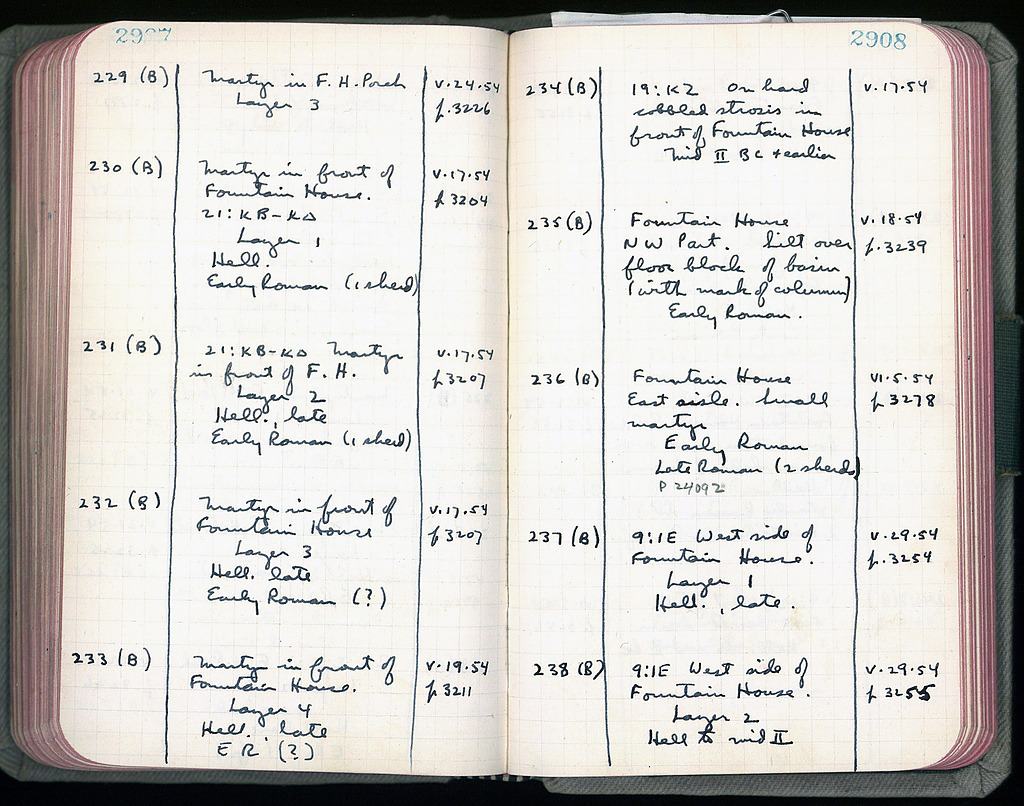 2907
229 (B) Martyr in F. H. Porch v.24.54
Layer 3 p.3226
230 (B) Martyr in front of v.17.54
Fountain House. p.3204
21:KB-KΔ
Layer 1
Hell.
Early Roman (1 sherd)
231 (B) 21:KB-KΔ Martyr v.17.54
in front of F. H. p.3207
Layer 2
Hell., late
Early Roman (1 sherd)
232 (B) Martyr in front of v.17.54
Fountain House p.3207
Layer 3
Hell. late
Early Roman (?)
233 (B) Martyr in front of v.19.54
Fountain House. p.3211
Layer 4
Hell. late
E R (?)
2908
234 (B) 19:KZ On hard v.17.54
cobbled strosis in
front of Fountain House
mid II BC + earlier
235 (B) Fountain House v.18.54
NW Part. Silt over p.3239
floor block of basin
(with mark of column)
Early Roman.
236 (B) Fountain House VI.5.54
East aisle. Small p.3278
martyr
Early Roman
Late Roman (2 sherds)
P 24092
237 (B) 9:ΙΕ West side of v.29.54
Fountain House. p.3254
Layer 1
Hell., late.
238 (B) 9:ΙΕ West side of v.29.54
Fountain House. p.3255
Layer 2
Hell to mid II